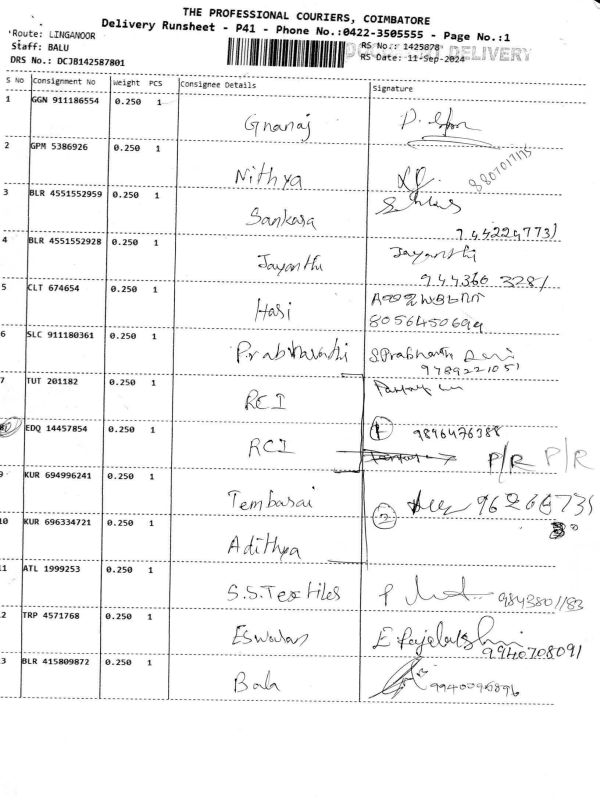 THE PROFESSIONAL COURIERS, COIMBATORE
Delivery Runsheet - P41 - Phone No.:0422-3505555 - Page No.:1
Route: LINGANOOR
RS No.: 1425878
DELIVERY
Staff: BALU
RS Date: 11-Sep-2024
DRS No.: DCJB142587801
S No Consignment No Weight PCS Consignee Details Signature
1 GGN 911186554 0.250 1 Gnanaj
2 GPM 5386926 0.250 1 Nithya 8807017175
3 BLR 4551552959 0.250 1 Sankara
4 BLR 4551552928 0.250 1 Jayanthi Jayanthi
944360 3281
5 CLT 674654 0.250 1 Hasi
8056450699
6 SLC 911180361 0.250 1 Prabhavathi
9789221051
7 TUT 201182 0.250 1 RCI
8 EDQ 14457854 0.250 1 RCI 1 9896476388
P/R P/R
9 KUR 694996241 0.250 1 Tembasai 2
10 KUR 696334721 0.250 1 Adithya
11 ATL 1999253 0.250 1 S.S.Textiles 9843801183
2 TRP 4571768 0.250 1 Eswaran E Rajalakshmi
9940708091
3 BLR 415809872 0.250 1 Bala 9940095896